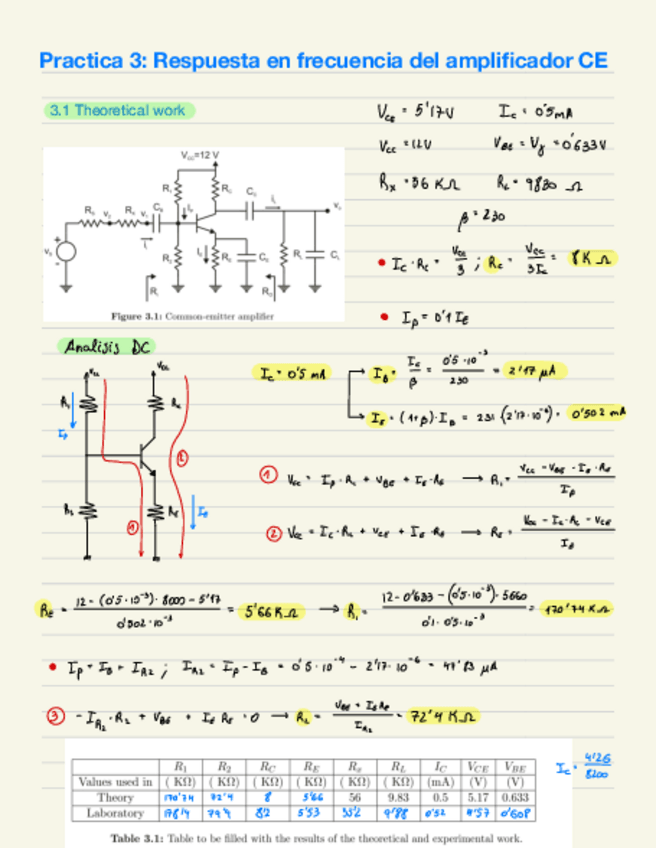 Practica 3: Respuesta en frecuencia del amplificador CE
3.1 Theoretical work
V_CE = 5'17V   I_C = 0'5mA
V_CC = 12V   V_BE = V_γ = 0'633V
R_x = 56 KΩ   R_L = 9830 Ω
β = 230
V_CC=12 V
R_1   R_C   C_C
R_s   v_s   R_x   C_B   I_B   i_L   v_o
R_2   I_E   R_E   C_E   R_L   C_L
R_i   R_O
Figure 3.1: Common-emitter amplifier
• I_C · R_C = V_CC/3 ; R_C = V_CC/3I_C = 8 KΩ
• I_P = 0'1 I_C
Analisis DC
V_CC   V_CC
R_1   R_C
I_P
R_2   R_E   I_E
① ②
I_C = 0'5 mA
I_B = I_C/β = 0'5·10^-3/230 = 2'17 μA
I_E = (1+β)·I_B = 231·(2'17·10^-6) = 0'502 mA
① V_CC = I_P·R_1 + V_BE + I_E·R_E → R_1 = (V_CC - V_BE - I_E·R_E)/I_P
② V_CC = I_C·R_C + V_CE + I_E·R_E → R_E = (V_CC - I_C·R_C - V_CE)/I_E
R_E = (12 - (0'5·10^-3)·8000 - 5'17)/(0'502·10^-3) = 5'66 KΩ → R_1 = (12 - 0'633 - (0'5·10^-3)·5660)/(0'1·0'5·10^-3) = 170'74 KΩ
• I_P = I_B + I_R2 ; I_R2 = I_P - I_B = 0'5·10^-4 - 2'17·10^-6 = 47'83 μA
③ -I_R2·R_2 + V_BE + I_E R_E = 0 → R_2 = (V_BE + I_E R_E)/I_R2 = 72'4 KΩ
R_1   R_2   R_C   R_E   R_x   R_L   I_C   V_CE   V_BE
Values used in   (KΩ)   (KΩ)   (KΩ)   (KΩ)   (KΩ)   (KΩ)   (mA)   (V)   (V)
Theory   170'74   72'4   8   5'66   56   9.83   0.5   5.17   0.633
Laboratory   178'4   74'4   8'2   5'53   55'2   9'88   0'52   4'57   0'608
I_C = 4'26/8200
Table 3.1: Table to be filled with the results of the theoretical and experimental work.